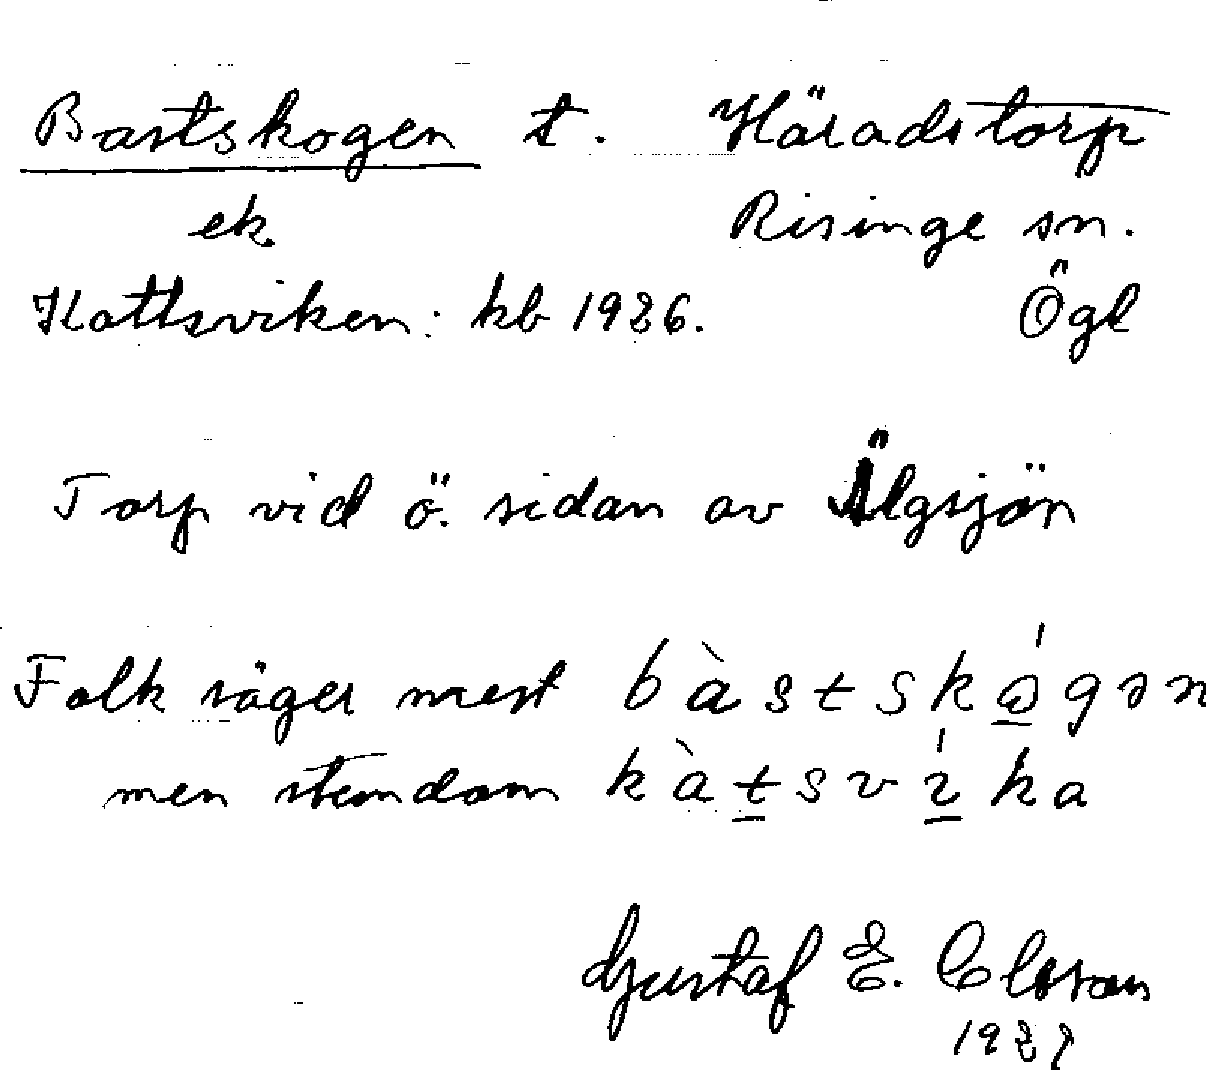 Bastskogen t. Häradstorp
ek. Risinge sn.
Kattsviken: kb 1926. Ögl
Torp vid ö. sidan av Älgsjön
Folk säger mest bàstskǫ́gən
men stundom kàt̠svíka
Gustaf E.